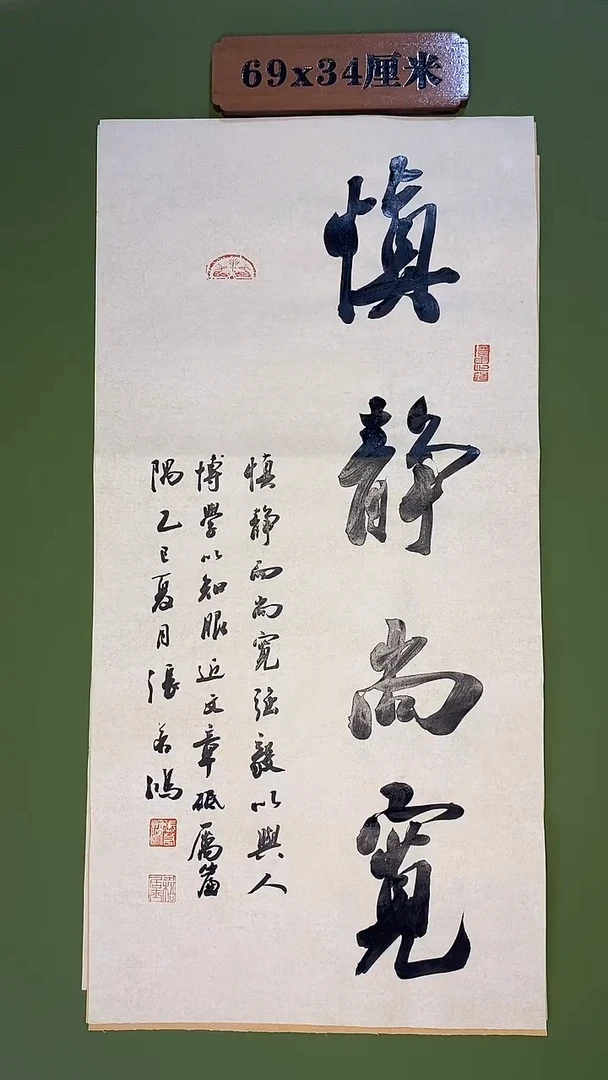 69x34厘米
慎静尚寬
慎静而尚寬強毅以與人
博學以知服近文章砥厲
隅乙巳夏月張鴻